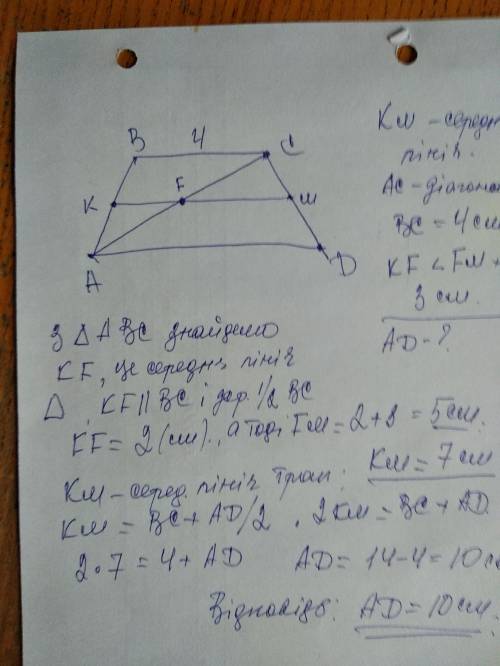 B 4 C
K F M
A D
KM – середн
лінія.
AC – діагон
BC = 4 см
KF < FM
3 см.
AD – ?
З △ ABC знайдемо
KF, це середня лінія
△. KF || BC і дор. 1/2 BC
KF = 2 (см)., а тоді FM = 2+3 = 5 см.
KM – серед. лінія трап. KM = 7 см
KM = BC + AD/2, 2KM = BC + AD
2 • 7 = 4 + AD AD = 14 – 4 = 10 с
Відповідь: AD = 10 см.